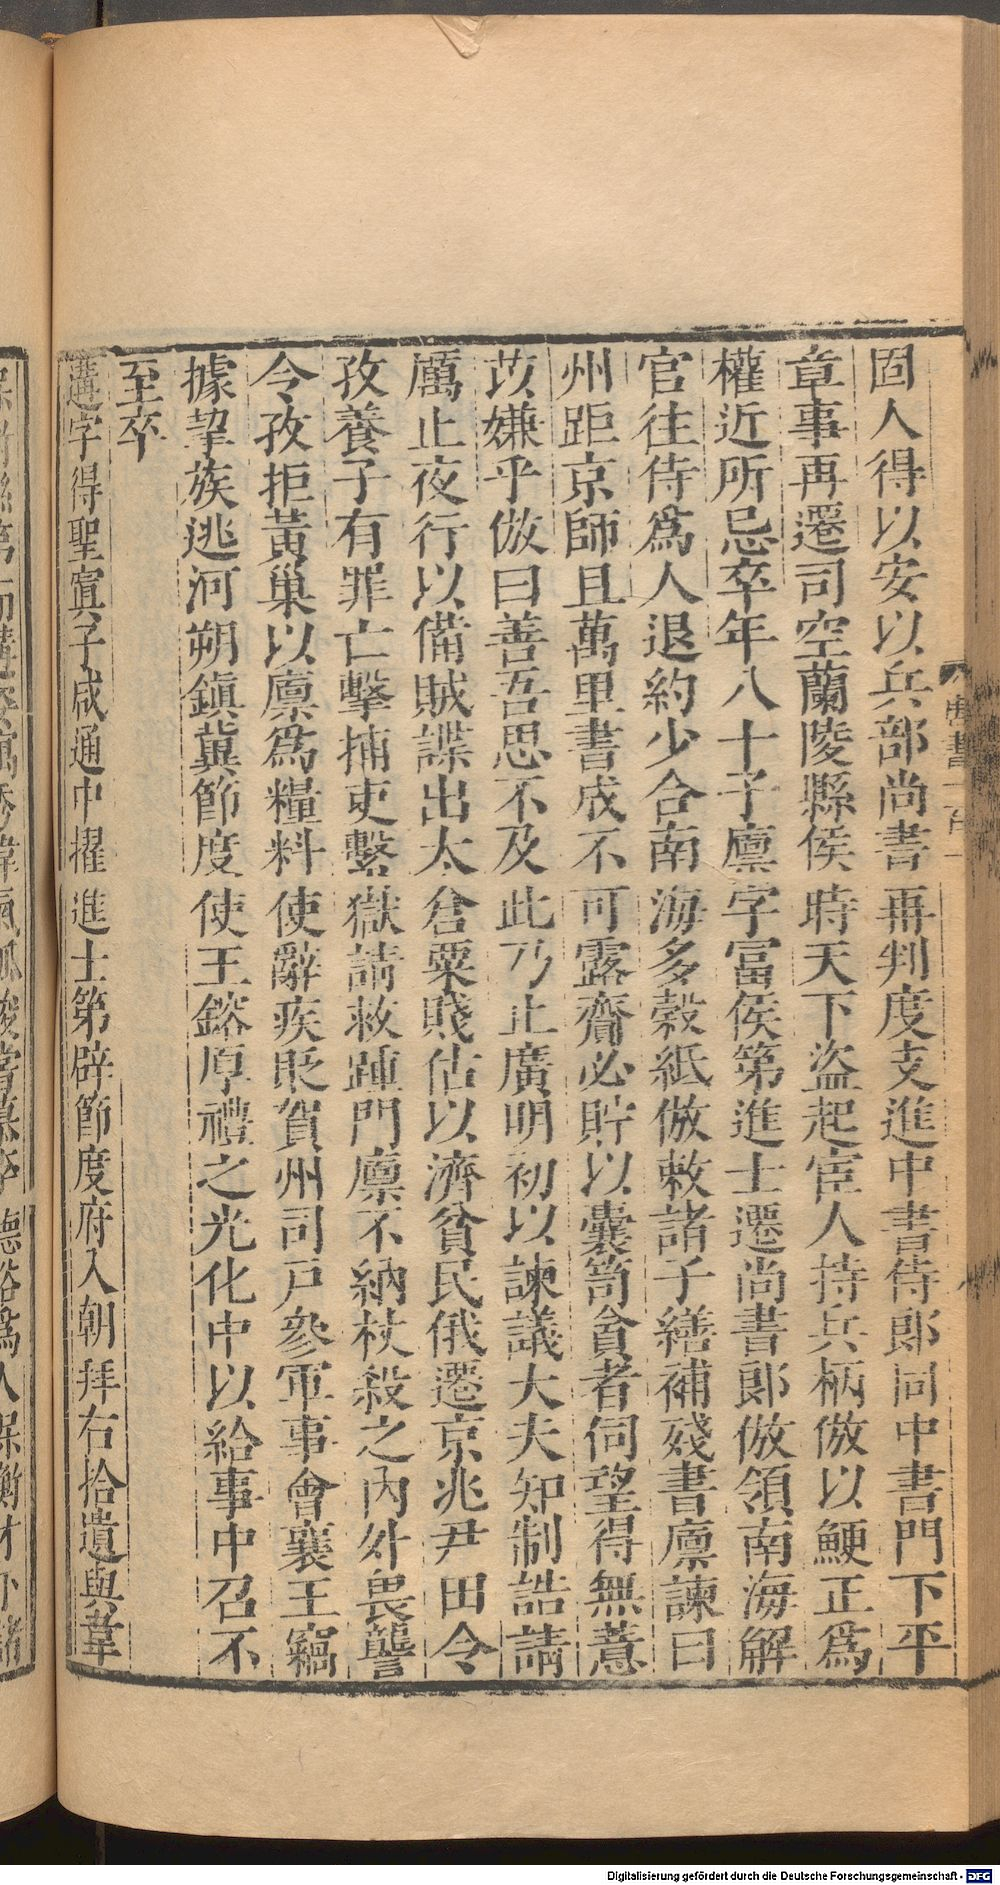 固人得以安以兵部尚書再判度支進中書侍郎同中書門下平
章事再遷司空蘭陵縣侯時天下盜起宦人持兵柄倣以鯁正為
權近所忌卒年八十子廩字富侯第進士遷尚書郎倣領南海解
官往侍爲人退約少合南海多榖紙倣敕諸子繕補殘書廩諫曰
州距京師且萬里書成不可露齎必貯以囊笥貧者伺望得無薏
苡嫌乎倣曰善吾思不及此乃止廣明初以諫議大夫知制誥請
厲止夜行以備賊諜出太倉粟賤估以濟貧民俄遷京兆尹田令
孜養子有罪亡擊捕吏繫獄請救踵門廩不納杖殺之內外畏讋
令孜拒黃巢以廩爲糧料使辭疾貶賀州司戶參軍事會襄王竊
據挈族逃河朔鎮冀節度使王鎔厚禮之光化中以給事中召不
至卒
遘字得聖寘子咸通中擢進士第辟節度府入朝拜右拾遺與韋
Digitalisierung gefördert durch die Deutsche Forschungsgemeinschaft - DFG